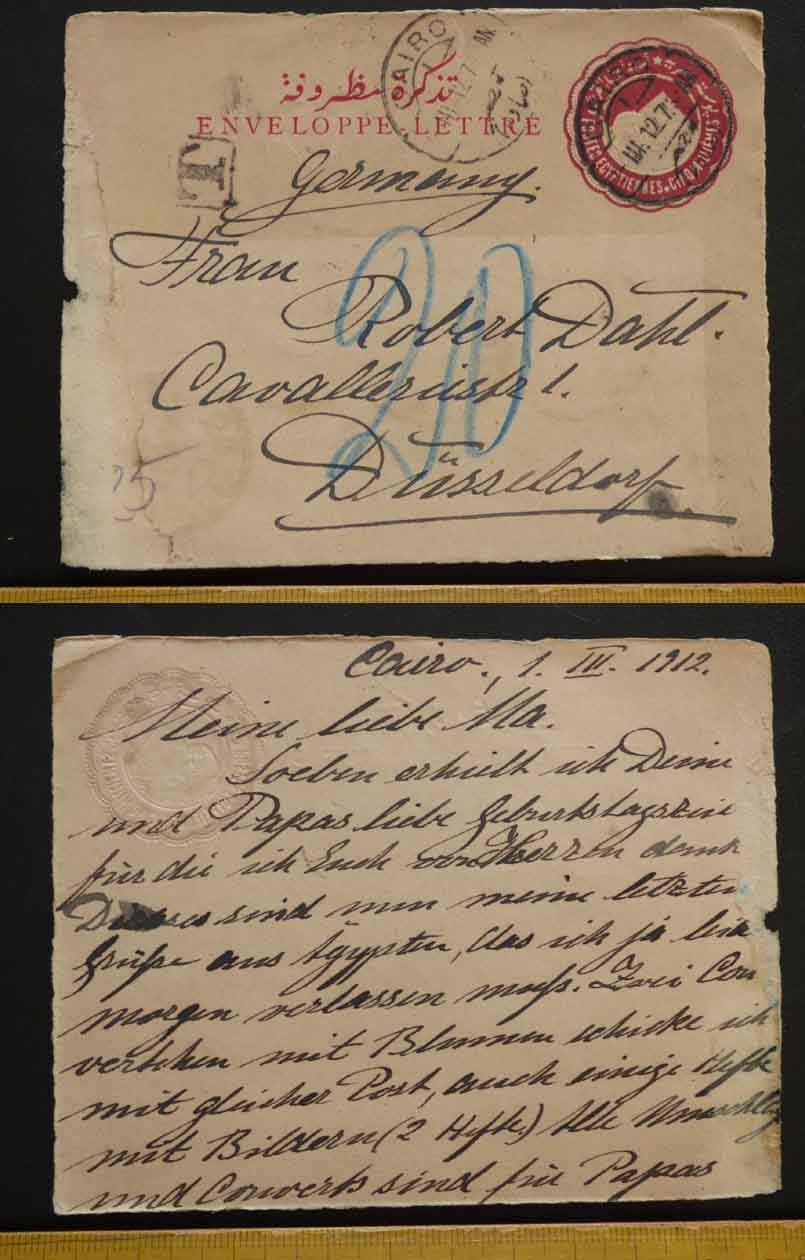 تذكرة مظروفة
ENVELOPPE LETTRE
CAIRO
T
Germany.
Frau
Robert Dahl.
Cavalleriestr 1.
Düsseldorf.
20
25
Cairo, 1. III. 1912.
Meine liebe Ma.
Soeben erhielt ich Deine
und Papas liebe
für die ich Euch von Herzen dank
sind nun meine letzten
Grüße aus Ägypten, das ich ja
morgen verlassen muß. Zwei Cou
vertchen mit Blumen schicke ich
mit gleicher Post, auch einige Hefte
mit Bildern (2 Hefte.) Alle
und Couverts sind für Papas